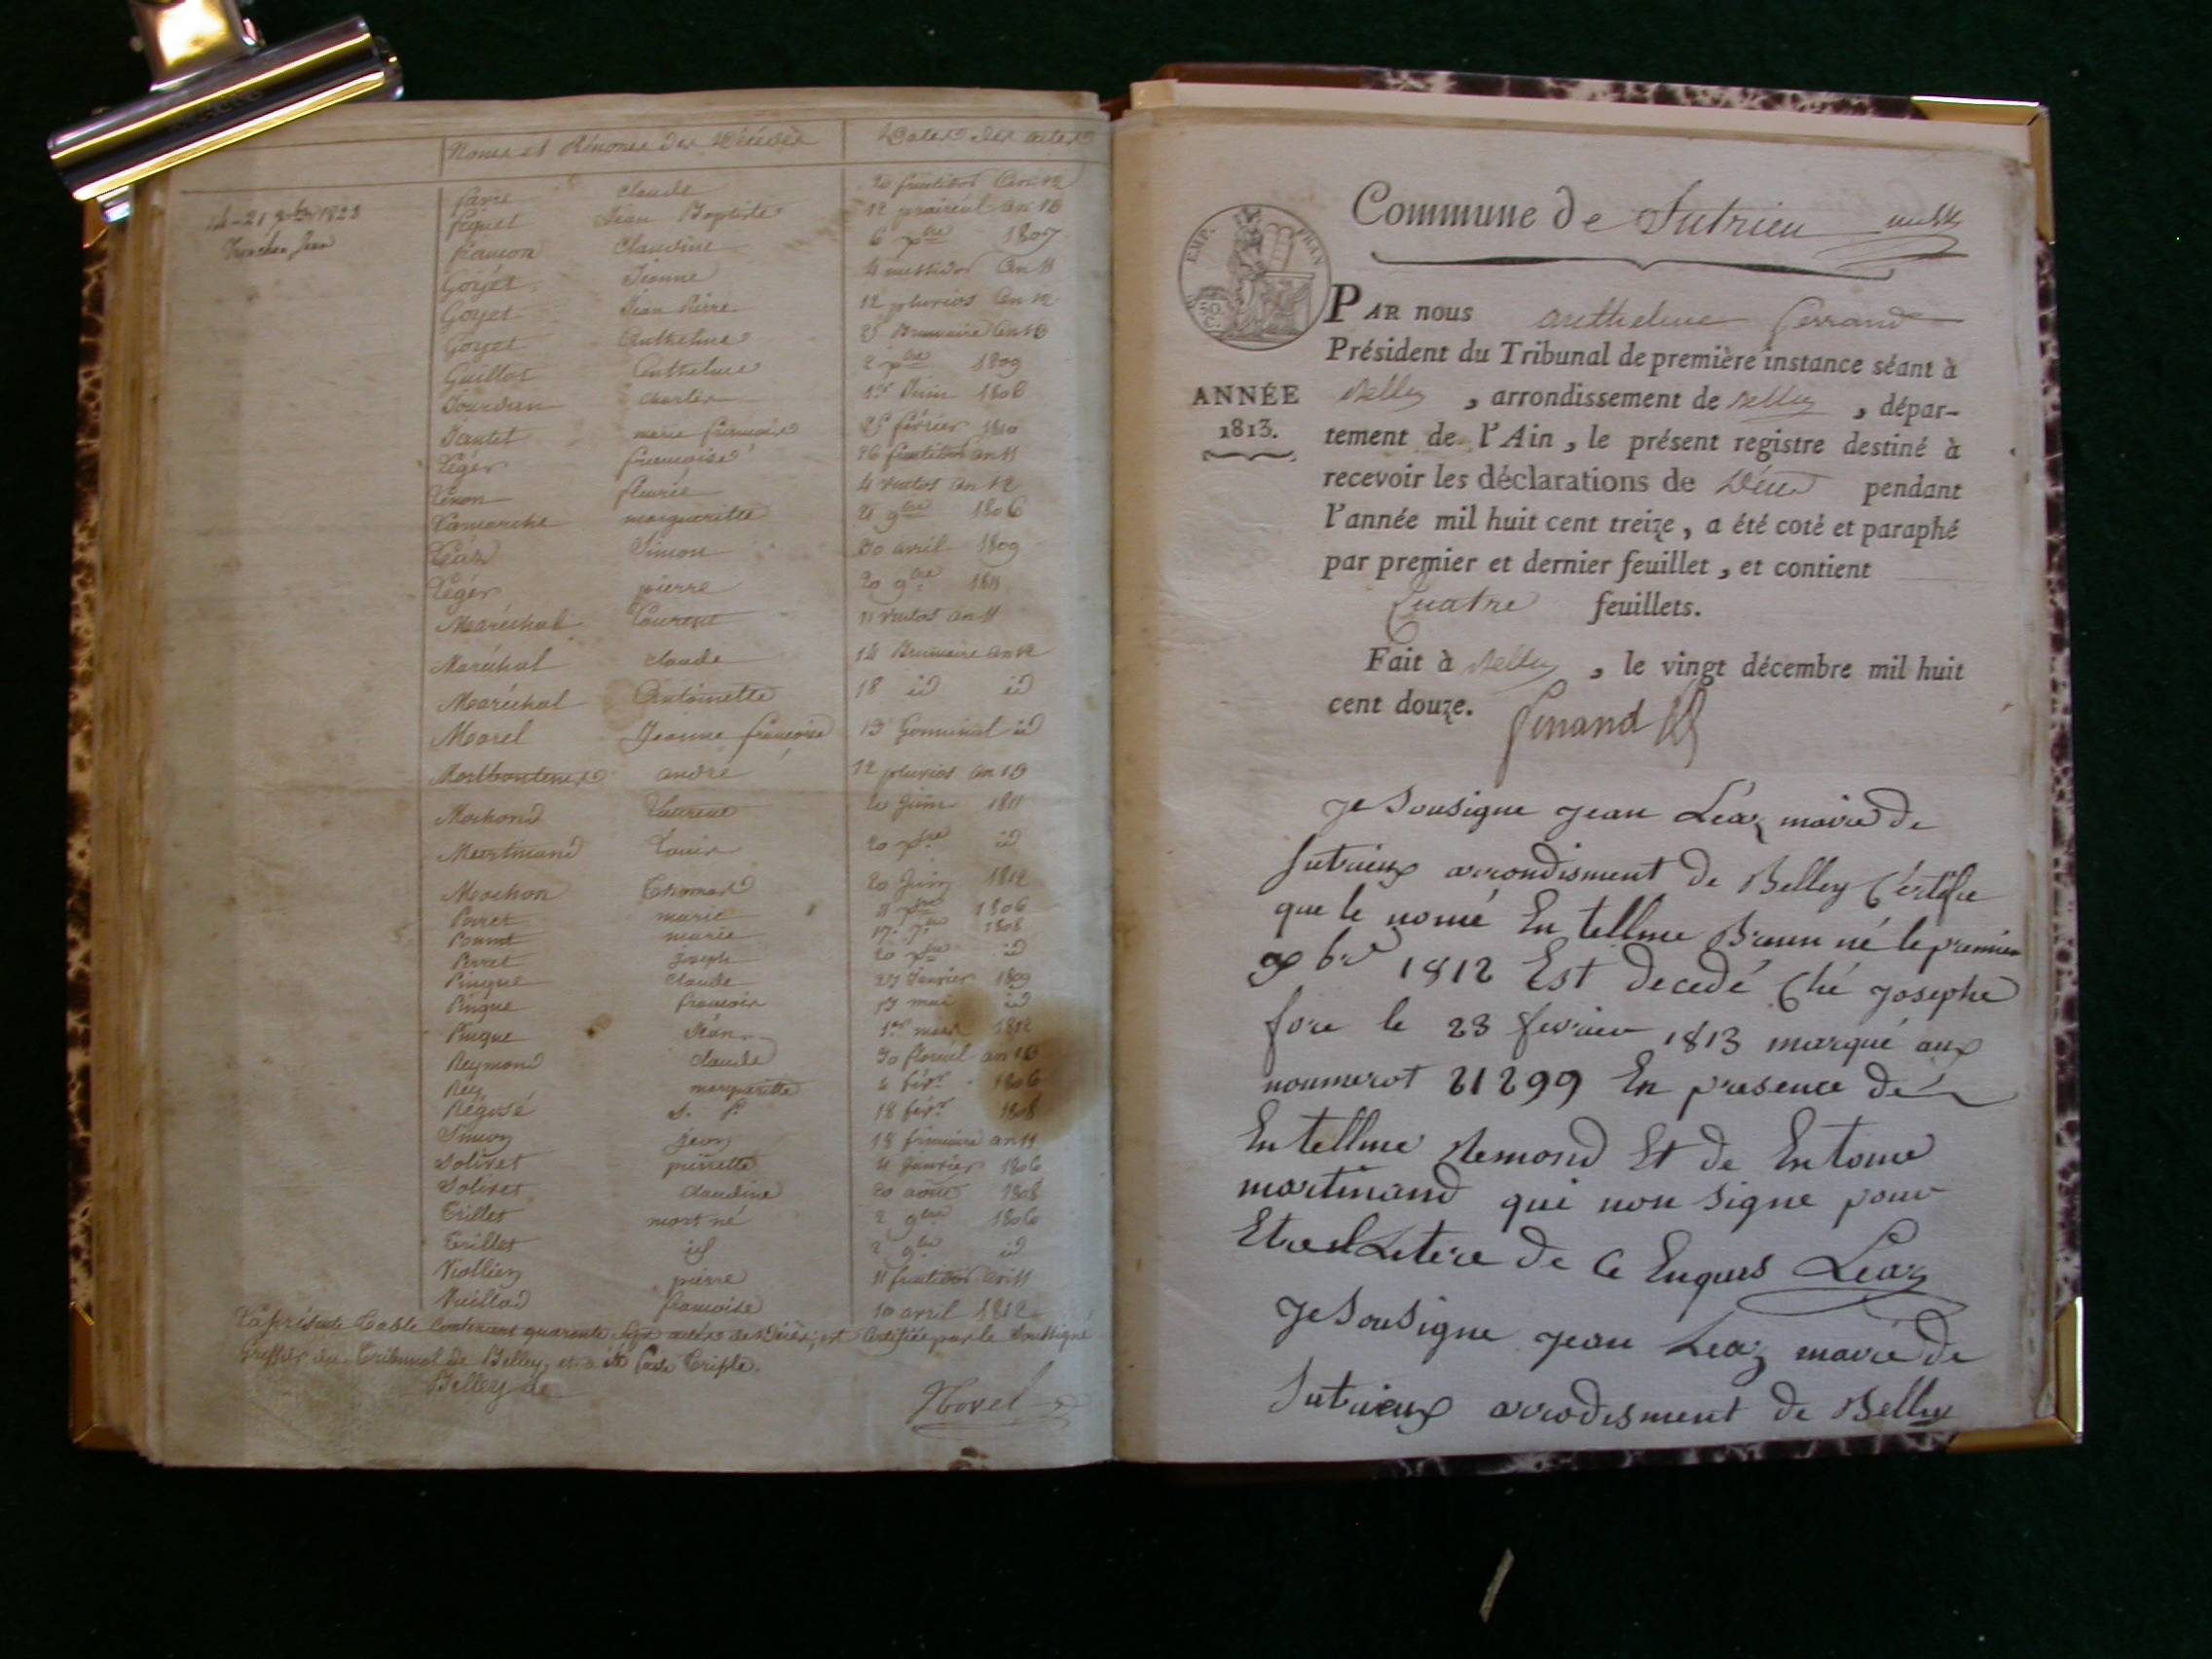 Noms et Prénoms des Décédés Dates des actes
favre claude 20 fructidor an 12
Piquet Jean Baptiste 12 prairial an 13
francon Claudine 6 xbre 1807
Goyet Jeanne 4 messidor an 11
Goyet Jean Pierre 12 pluvios an 12
Goyet Anthelme 25 Brumaire an 13
Guillot Anthelme 2 xbre 1809
Jourdan charles 1er Juin 1806
Jantet marie françoise 25 février 1810
Léger françoise 26 fructidor an 11
Lénon fleurie 4 ventos an 12
Lamarche margueritte 4 9bre 1806
Léaz Simon 30 avril 1809
Léger pierre 20 9bre 1811
Maréchal Laurent 11 ventos an 11
Maréchal claude 14 Brumaire an 12
Maréchal Antoinette 18 id id
Morel Jeanne françoise 13 Germinal id
andré 12 pluvios an 13
Mochond Laurent 20 Juin 1811
Martinand Louis 20 xbre id
Mochon Thomas 20 Juin 1812
Perret marie 11 xbre 1806
marie 17 7bre 1808
Perret Joseph 20 xbre id
Pingue Claude 27 Janvier 1809
Pingue françois 17 mai id
Pingue Jean 1er mars 1812
Reymond claude 30 floréal an 13
Rey margueritte 4 févr 1806
J. P. 18 févr 1808
Simon jean 18 frimaire an 11
Solivet pierrette 4 Janvier 1806
Solivet claudine 20 août 1808
Trillet mort né 2 9bre 1806
Trillet id 2 9bre id
Viollien pierre 11 fructidor an 11
Vuillod françoise 10 avril 1812
La présente Table Contenant quarante sept actes de Décès, est Certifiée par le soussigné
Greffier du Tribunal de Belley, et a été faite Triple.
Belley le
Novel
Commune de Sutrieu
EMP. FRAN
50 C.
PAR NOUS anthelme ferrand
Président du Tribunal de première instance séant à
ANNÉE
1813.
Belley , arrondissement de Belley , dépar-
tement de l'Ain, le présent registre destiné à
recevoir les déclarations de Décès pendant
l'année mil huit cent treize, a été coté et paraphé
par premier et dernier feuillet, et contient
quatre feuillets.
Fait à Belley , le vingt décembre mil huit
cent douze. ferrand
je Sousigne jean Léaz maire de
Sutrieux arrondisment de Belley Certifie
que le nomé En tellme Braun né le premier
xbre 1812 Est decedé Ché josephe
fore le 23 fevrier 1813 marqué aux
noumerot 21299 En presence de
En tellme Remond Et de Entome
martinand qui non signe pour
Etre Letere de Ce Enquis Leaz
je Sousigne jean Leaz maire de
Sutrieux arrodisment de Belley